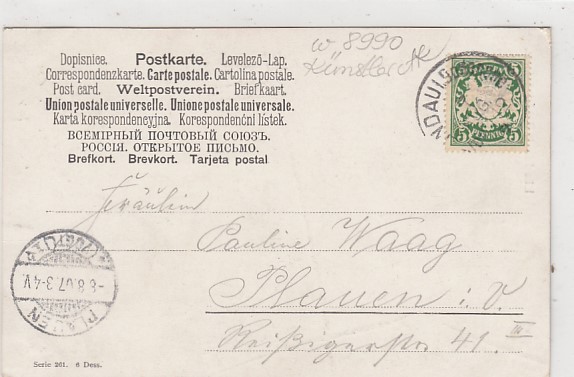 w 8990
Künstler AK
Dopisnice. Postkarte. Levelező-Lap.
Correspondenzkarte. Carte postale. Cartolina postale.
Post card. Weltpostverein. Briefkaart.
Union postale universelle. Unione postale universale.
Karta korespondencyjna. Korespondenční lístek.
ВСЕМІРНЫЙ ПОЧТОВЫЙ СОЮЗЪ.
РОССІЯ. ОТКРЫТОЕ ПИСЬМО.
Brefkort. Brevkort. Tarjeta postal
BAYERN
5 5
PFENNIG
NDAU
Fräulein
Pauline Waag
Plauen i. V.
Reißigerstr 41. III
PLAUEN
-8.8.07.3-4V.
(VOGTL.)
Serie 261. 6 Dess.